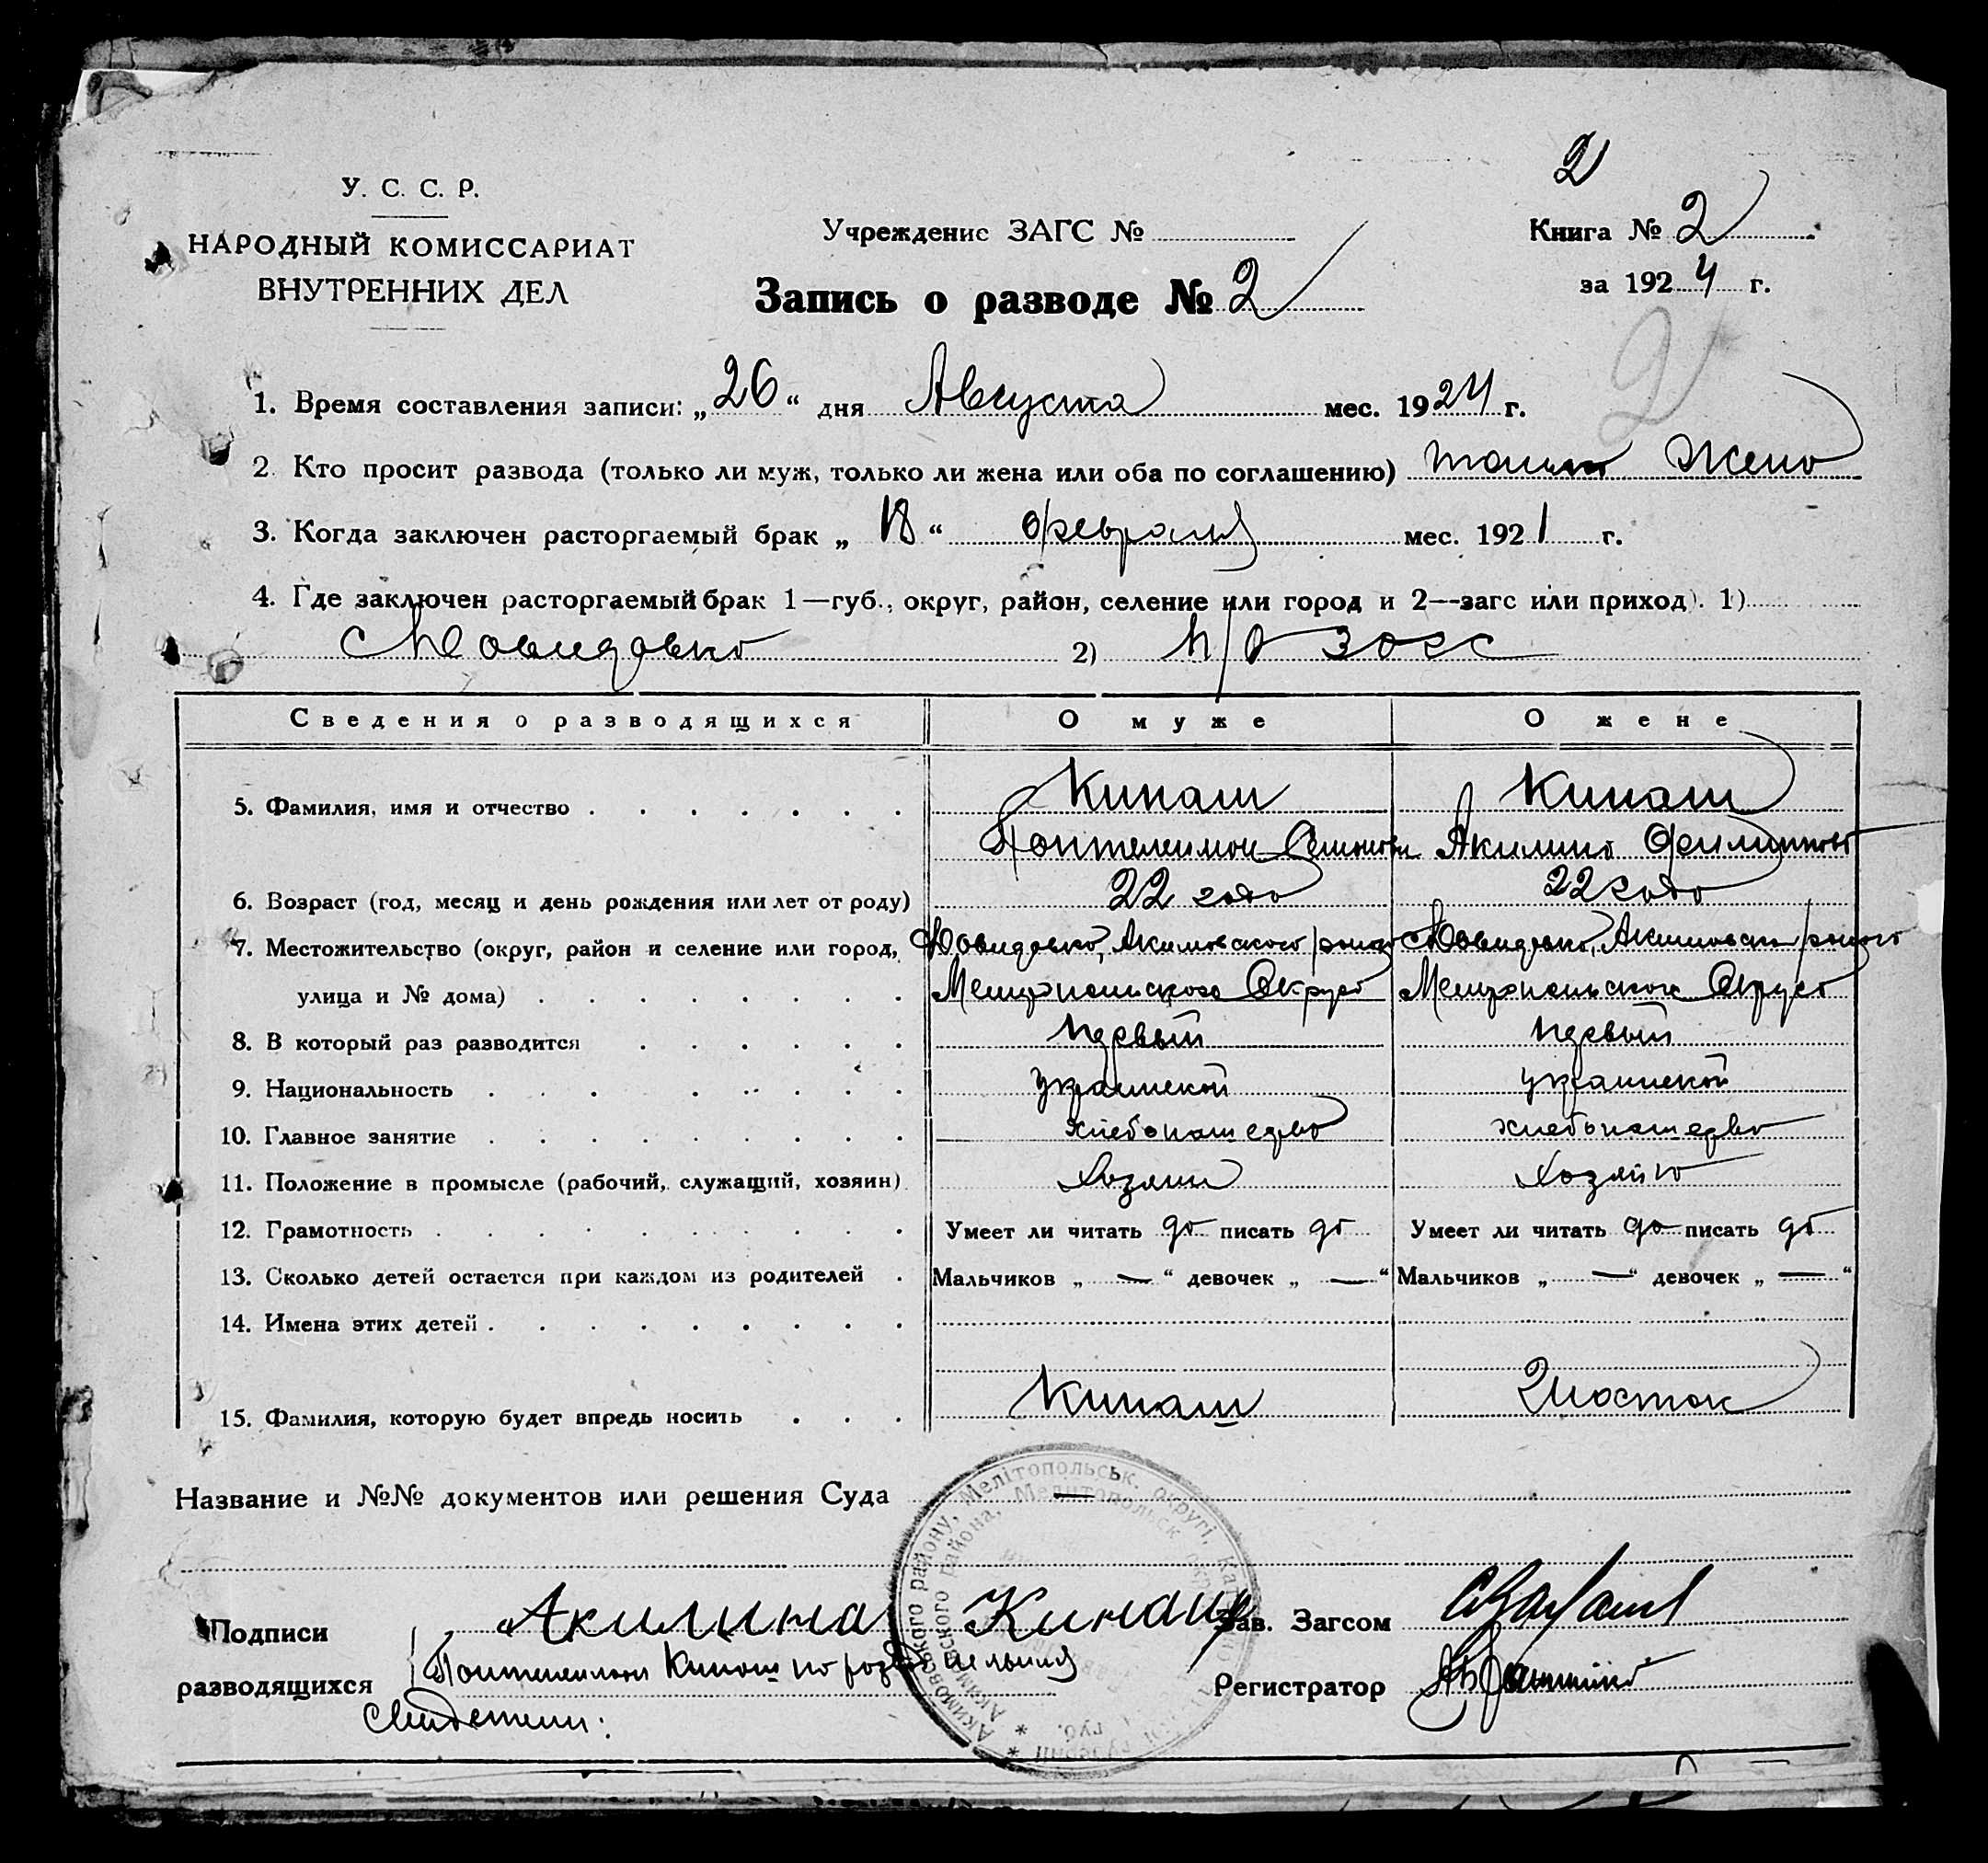 2
У. С. С. Р.
НАРОДНЫЙ КОМИССАРИАТ
ВНУТРЕННИХ ДЕЛ
Учреждение ЗАГС №
Книга № 2
за 1924 г.
Запись о разводе № 2
2
1. Время составления записи: „26“ дня Августа мес. 1924 г.
2. Кто просит развода (только ли муж, только ли жена или оба по соглашению) только жена
3. Когда заключен расторгаемый брак „18“ февраля мес. 1921 г.
4. Где заключен расторгаемый брак 1—губ., округ, район, селение или город и 2—загс или приход). 1)
2) п/о загс
Сведения о разводящихся О муже О жене
5. Фамилия, имя и отчество Кинаш Кинаш
Пантелеимон Акилина
6. Возраст (год, месяц и день рождения или лет от роду) 22 года 22 года
7. Местожительство (округ, район и селение или город, Акимовского района Акимовского района
улица и № дома) Мелитопольского Округа Мелитопольского Округа
8. В который раз разводится первый первый
9. Национальность украинской украинской
10. Главное занятие хлебопашество хлебопашество
11. Положение в промысле (рабочий, служащий, хозяин) Хозяин Хозяйка
12. Грамотность Умеет ли читать да писать да Умеет ли читать да писать да
13. Сколько детей остается при каждом из родителей Мальчиков „—“ девочек „—“ Мальчиков „—“ девочек „—“
14. Имена этих детей
15. Фамилия, которую будет впредь носить Кинаш Шосток
Название и №№ документов или решения Суда —
Подписи разводящихся
Акилина Кинаш
Пантелеимон Кинаш
Свидетели:
Зав. Загсом
Регистратор
Акимовського району, Мелітопольськ. округі,
Акимовского района, Мелитопольск